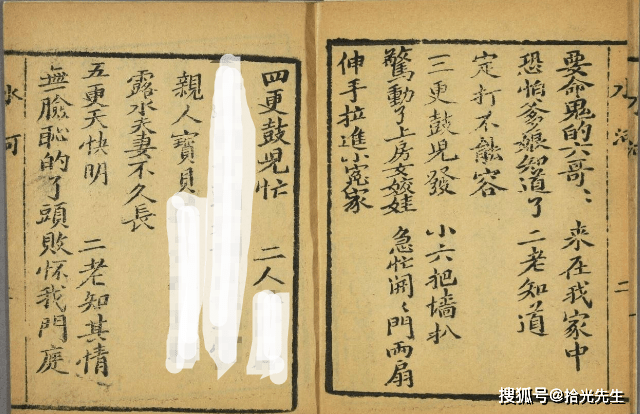 要命鬼的六哥、來在我家中
恐怕爹娘知道了 二老知道
定打不能容
三更鼓兒發 小六把墙扒
驚動了上房文姣娃 急忙開〻門兩扇
伸手拉進小寃家
四更鼓兒忙 二人
親人寶貝
露水夫妻不久長
五更天快明 二老知其情
無臉恥的了頭敗怀我門庭
搜狐号@拾光先生